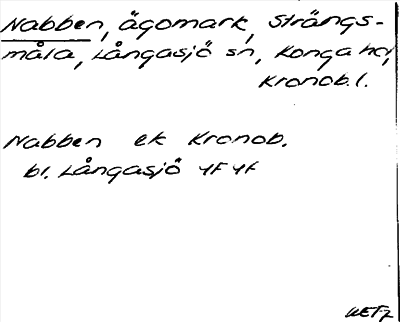 Nabben, ägomark, Strängs-
måla, Långasjö sn, Konga hd,
Kronob. l.
Nabben ek Kronob.
bl. Långasjö 4F4f